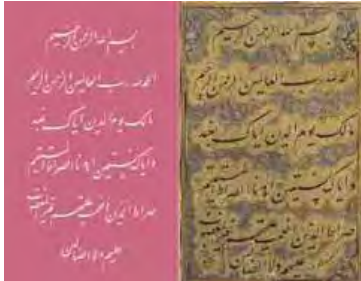 بسم الله الرحمن الرحیم
الحمد لله رب العالمین الرحمن الرحیم
مالک یوم الدین ایاک نعبد
و ایاک نستعین اهدنا الصراط المستقیم
صراط الذین انعمت علیهم غیر المغضوب
علیهم ولا الضالین
بسم الله الرحمن الرحیم
الحمد لله رب العالمین الرحمن الرحیم
مالک یوم الدین ایاک نعبد
و ایاک نستعین اهدنا الصراط المستقیم
صراط الذین انعمت علیهم غیر المغضوب
علیهم ولا الضالین